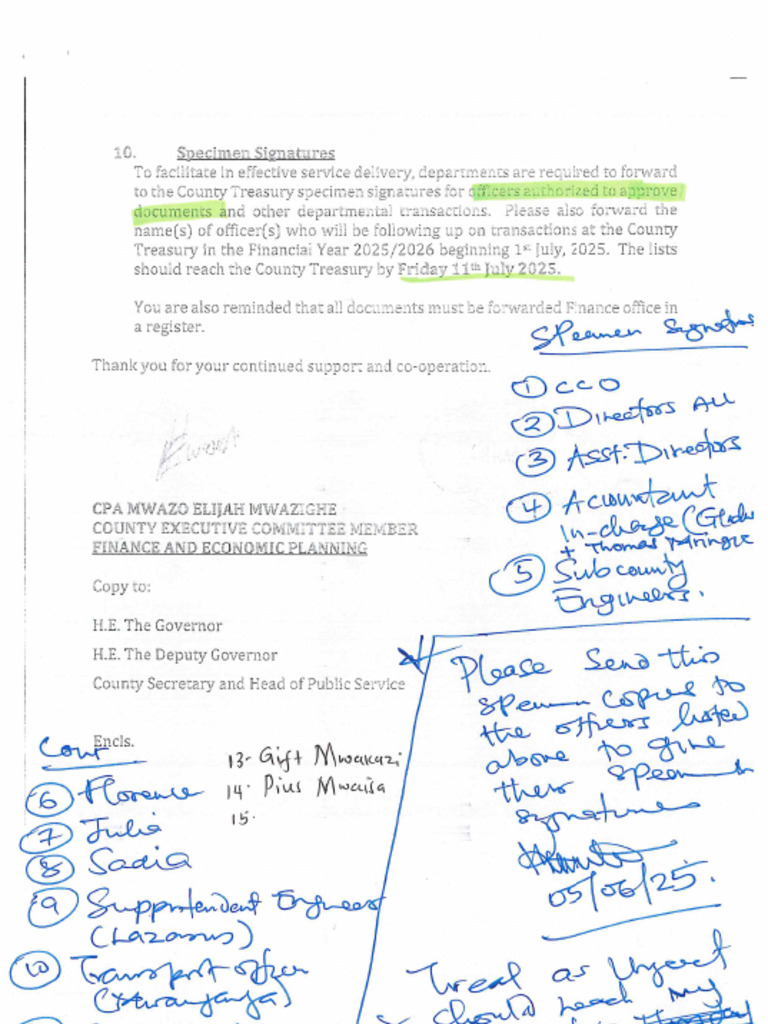 10. Specimen Signatures
To facilitate in effective service delivery, departments are required to forward
to the County Treasury specimen signatures for officers authorized to approve
documents and other departmental transactions. Please also forward the
name(s) of officer(s) who will be following up on transactions at the County
Treasury in the Financial Year 2025/2026 beginning 1st July, 2025. The lists
should reach the County Treasury by Friday 11th July 2025.
You are also reminded that all documents must be forwarded Finance office in
a register.
Thank you for your continued support and co-operation.
CPA MWAZO ELIJAH MWAZIGHE
COUNTY EXECUTIVE COMMITTEE MEMBER
FINANCE AND ECONOMIC PLANNING
Copy to:
H.E. The Governor
H.E. The Deputy Governor
County Secretary and Head of Public Service
Encls.
Spemen Signatures
1 CCO
2 Directors All
3 Asst. Directors
4 Accountant
In-charge (
+ Thomas
5 Subcounty
Engineers.
Please Send this
spemen copies to
the officers listed
above to give
their spemen
signatures
05/06/25.
Treat as Urgent
should reach my
Cont
6 Florence
7 Julia
8 Sadia
9 Supprotendent Engineer
(Lazarus)
10 Transport officer
13. Gift Mwakazi
14. Pius Mwaisa
15.